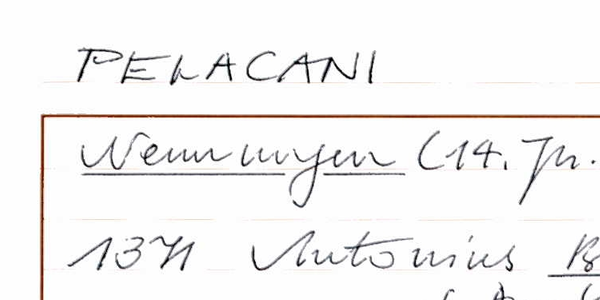 PELACANI
Nennungen (14. Jh.
1371 Antonius